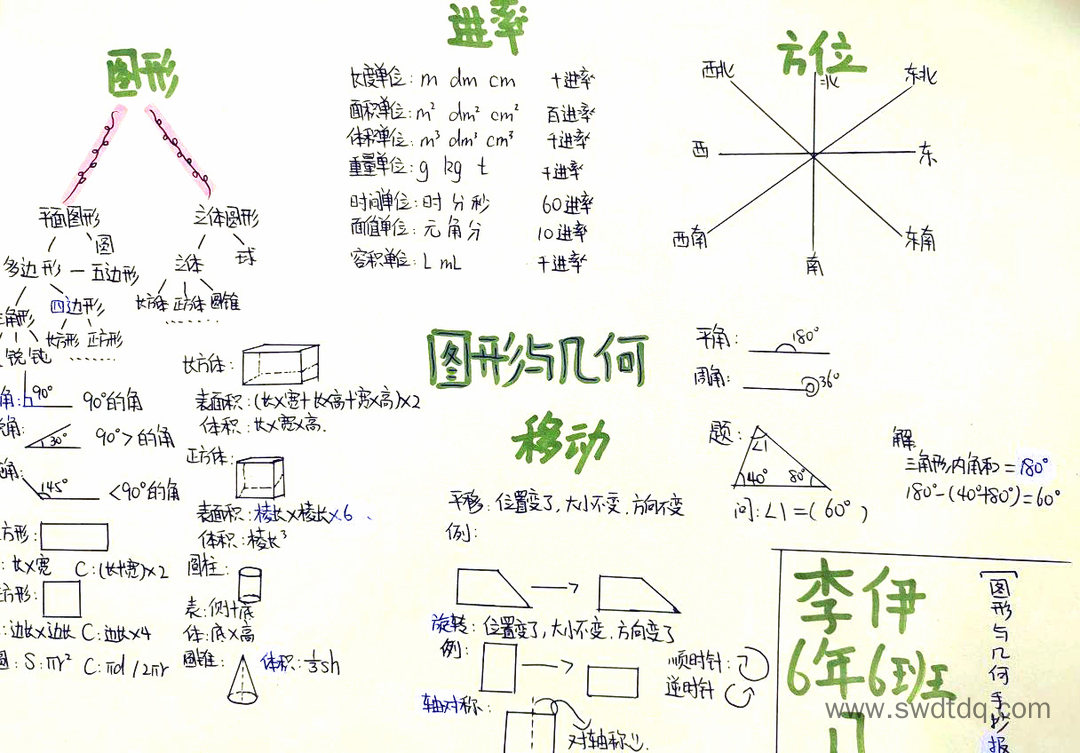 图形
平面图形
立体图形
圆
多边形 — 五边形
立体
球
三角形
四边形
长方体 正方体 圆锥
......
锐 钝
长方形 正方形
......
角: 90° 90°的角
角: 30° 90°>的角
角: 145° <90°的角
方形:
: 长×宽 C:(长+宽)×2
方形:
: 边长×边长 C:边长×4
圆: S:πr² C:πd/2πr
长方体:
表面积:(长×宽+长×高+宽×高)×2
体积:长×宽×高.
正方体:
表面积:棱长×棱长×6
体积:棱长³
圆柱:
表:侧+底
体:底×高
圆锥: 体积:⅓sh
进率
长度单位: m dm cm 十进率
面积单位: m² dm² cm² 百进率
体积单位: m³ dm³ cm³ 千进率
重量单位: g kg t 千进率
时间单位: 时 分 秒 60进率
面值单位: 元 角 分 10进率
容积单位: L mL 千进率
方位
西北 北 东北
西 东
西南 南 东南
图形与几何
移动
平移: 位置变了,大小不变,方向不变
例:
旋转: 位置变了,大小不变,方向变了
例:
顺时针:
逆时针
轴对称:
对轴称
平角: 180°
周角: 36°
题: ∠1 40° 80°
问:∠1=(60°)
解
三角形内角和=180°
180°-(40°+80°)=60°
李伊
6年6班
[图形与几何手抄报
www.swdtdq.com